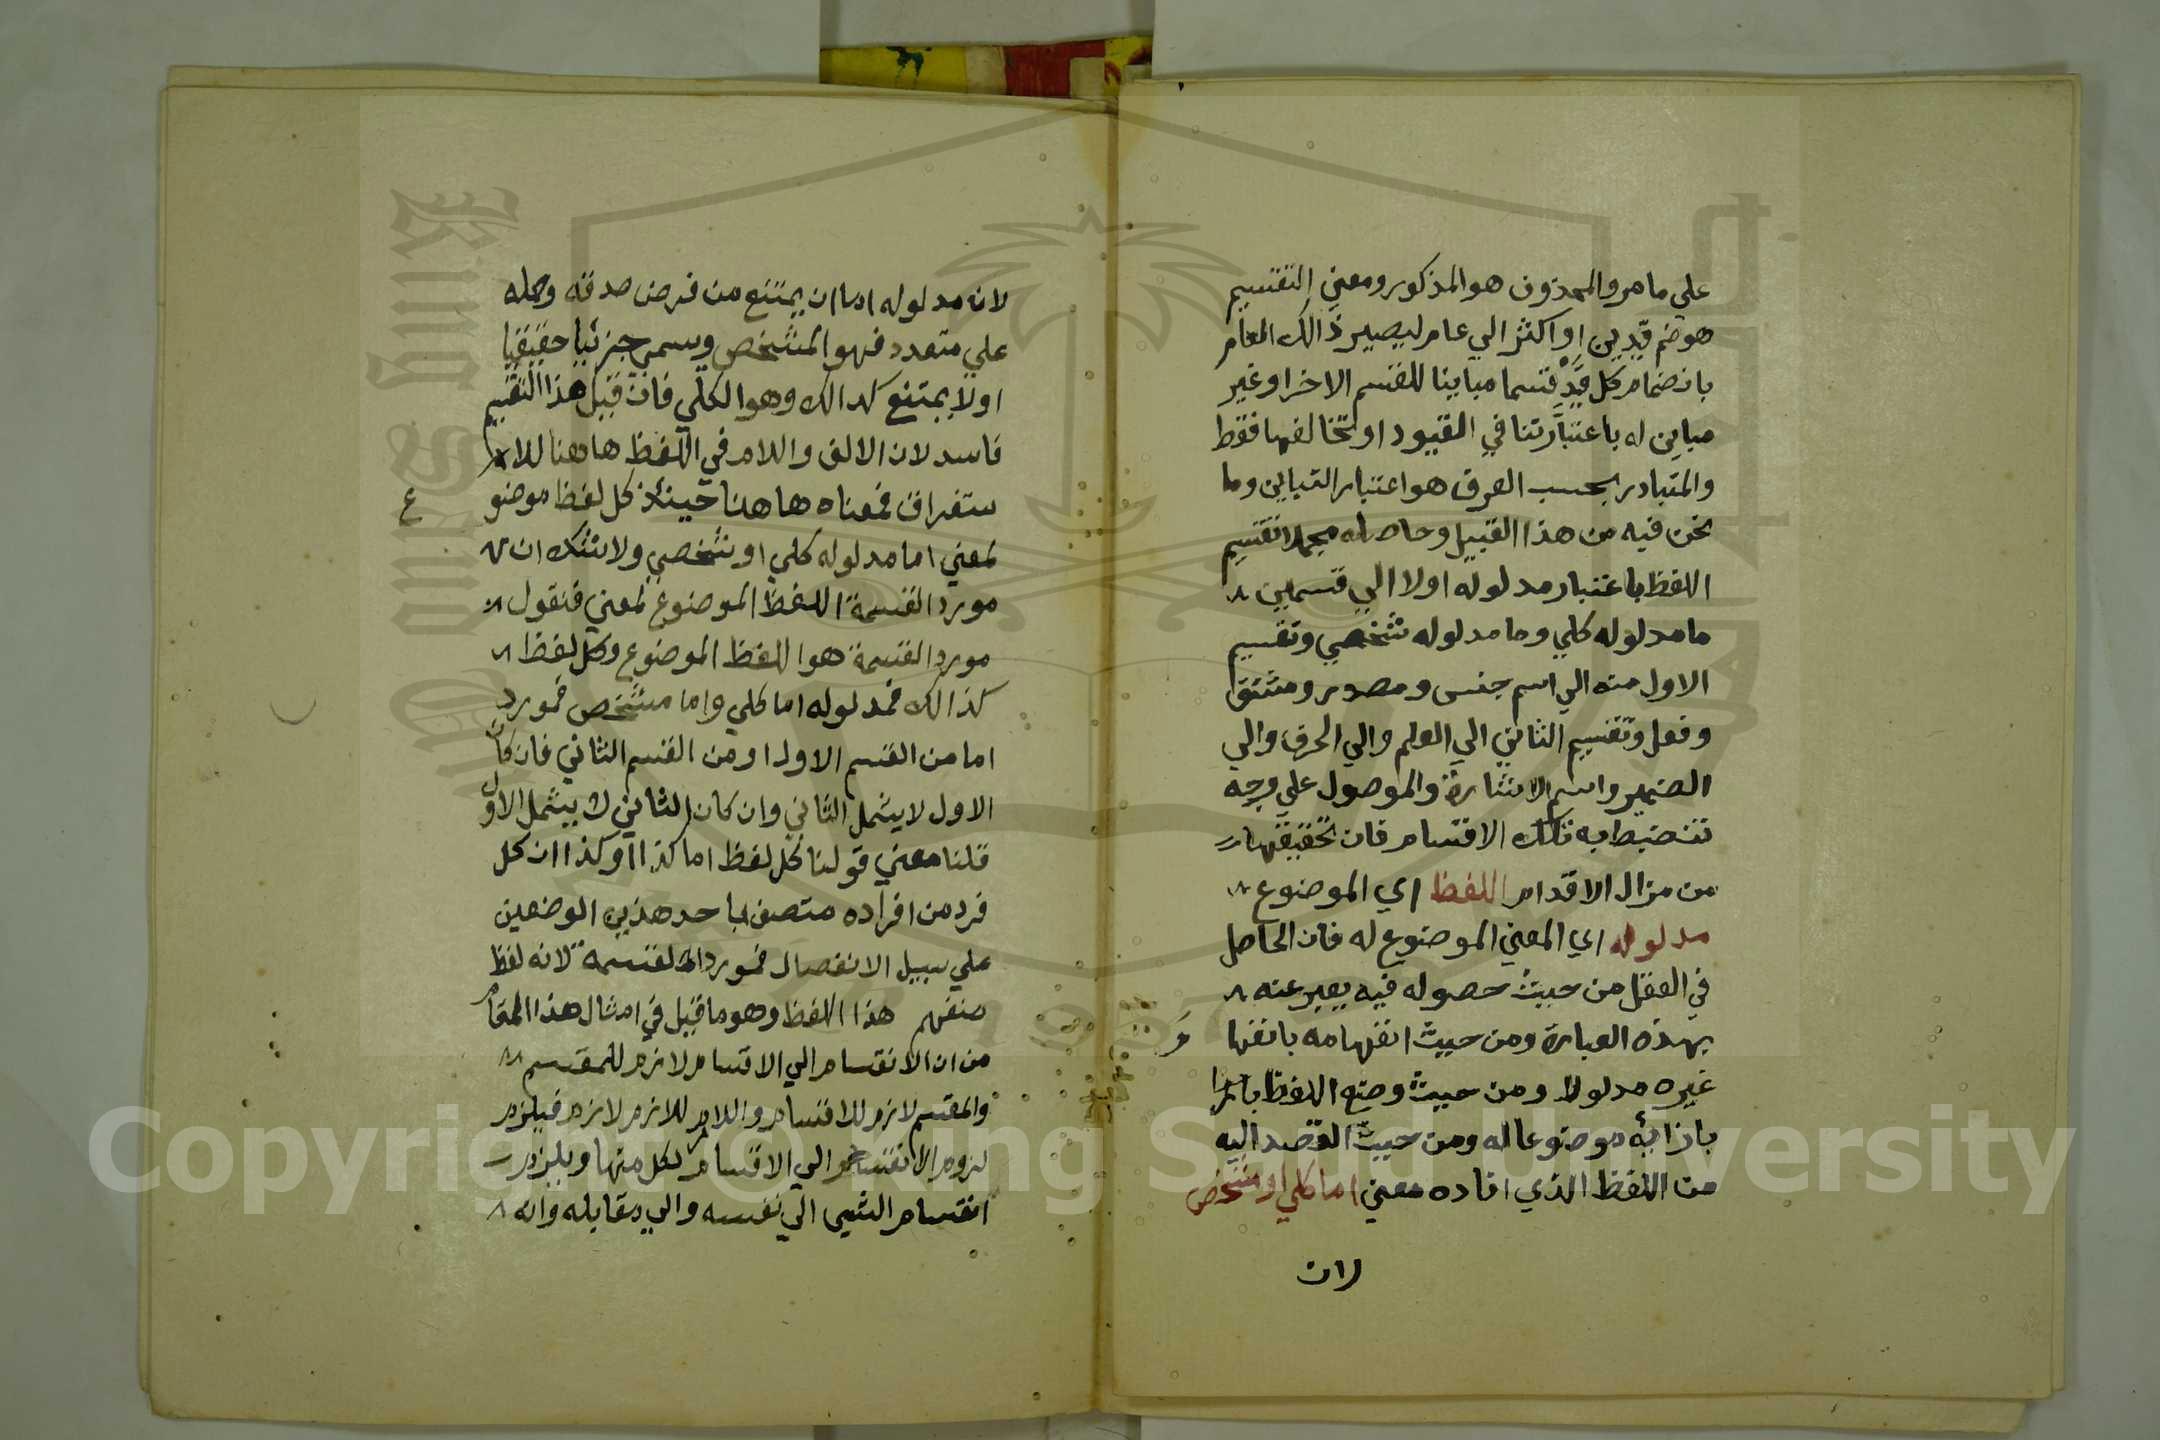 علي ما مر والمحذوف هو المذكور ومعني التقسيم
هو ضم قيدين او اكثر الي عام ليصير ذالك العام
بانضمام كل قيد قسما مباينا للقسم الاخر او غير
مباين له باعتبار تنافي القيود او تخالفها فقط
والمتبادر بحسب العرف هو اعتبار التباين وما
نحن فيه من هذا القبيل وحاصله مجملا تقسيم
اللفظ باعتبار مدلوله اولا الي قسمين
ما مدلوله كلي وما مدلوله شخصي وتقسيم
الاول منه الي اسم جنس ومصدر ومشتق
وفعل وتقسيم الثاني الي العلم والي الحرف والي
الضمير واسم الاشارة والموصول علي وجه
تنضبط به تلك الاقسام فان تحقيقها
من مزال الاقدام اللفظ اي الموضوع
مدلوله اي المعني الموضوع له فان الحاصل
في العقل من حيث حصوله فيه يعبر عنه
بهذه العبارة ومن حيث انفهامه بانفها م
غيره مدلولا ومن حيث وضع اللفظ
بازائه موضوعا له ومن حيث القصد اليه
من اللفظ الذي افاده معني اما كلي او مشخص
لان
لان مدلوله اما ان يمتنع من فرض صدقه وحمله
علي متعدد فهو المشخص ويسمي جزئيا حقيقيا
اولا يمتنع كذالك وهو الكلي فان قيل هذا التقسيم
فاسد لان الالف واللام في اللفظ هاهنا للا
ستغراق فمعناه هاهنا حينئذ كل لفظ موضو ع
لمعني اما مدلوله كلي او شخصي ولا شك ان
مورد القسمة اللفظ الموضوع لمعني فنقول
مورد القسمة هو اللفظ الموضوع وكل لفظ
كذالك فمدلوله اما كلي واما مشخص فمورد
اما من القسم الاول او من القسم الثاني فان كان
الاول لا يشمل الثاني وان كان الثاني لا يشمل الاول
قلنا معني قولنا كل لفظ اما كذا او كذا ان كل
فرد من افراده متصف باحد هذين الوضعين
علي سبيل الانفصال فمورد القسمة لانه لفظ
هذا اللفظ وهو ما قيل في امثال هذا المقام
من ان الانقسام الي الاقسام لازم للمقسم
والمقسم لازم للاقسام واللازم للازم لازم فيلزم
لزوم الانقسام الي الاقسام لكل منها ويلزم
انقسام الشيي الي نفسه والي مقابله وانه
Copyright © King Saud University
King Saud University